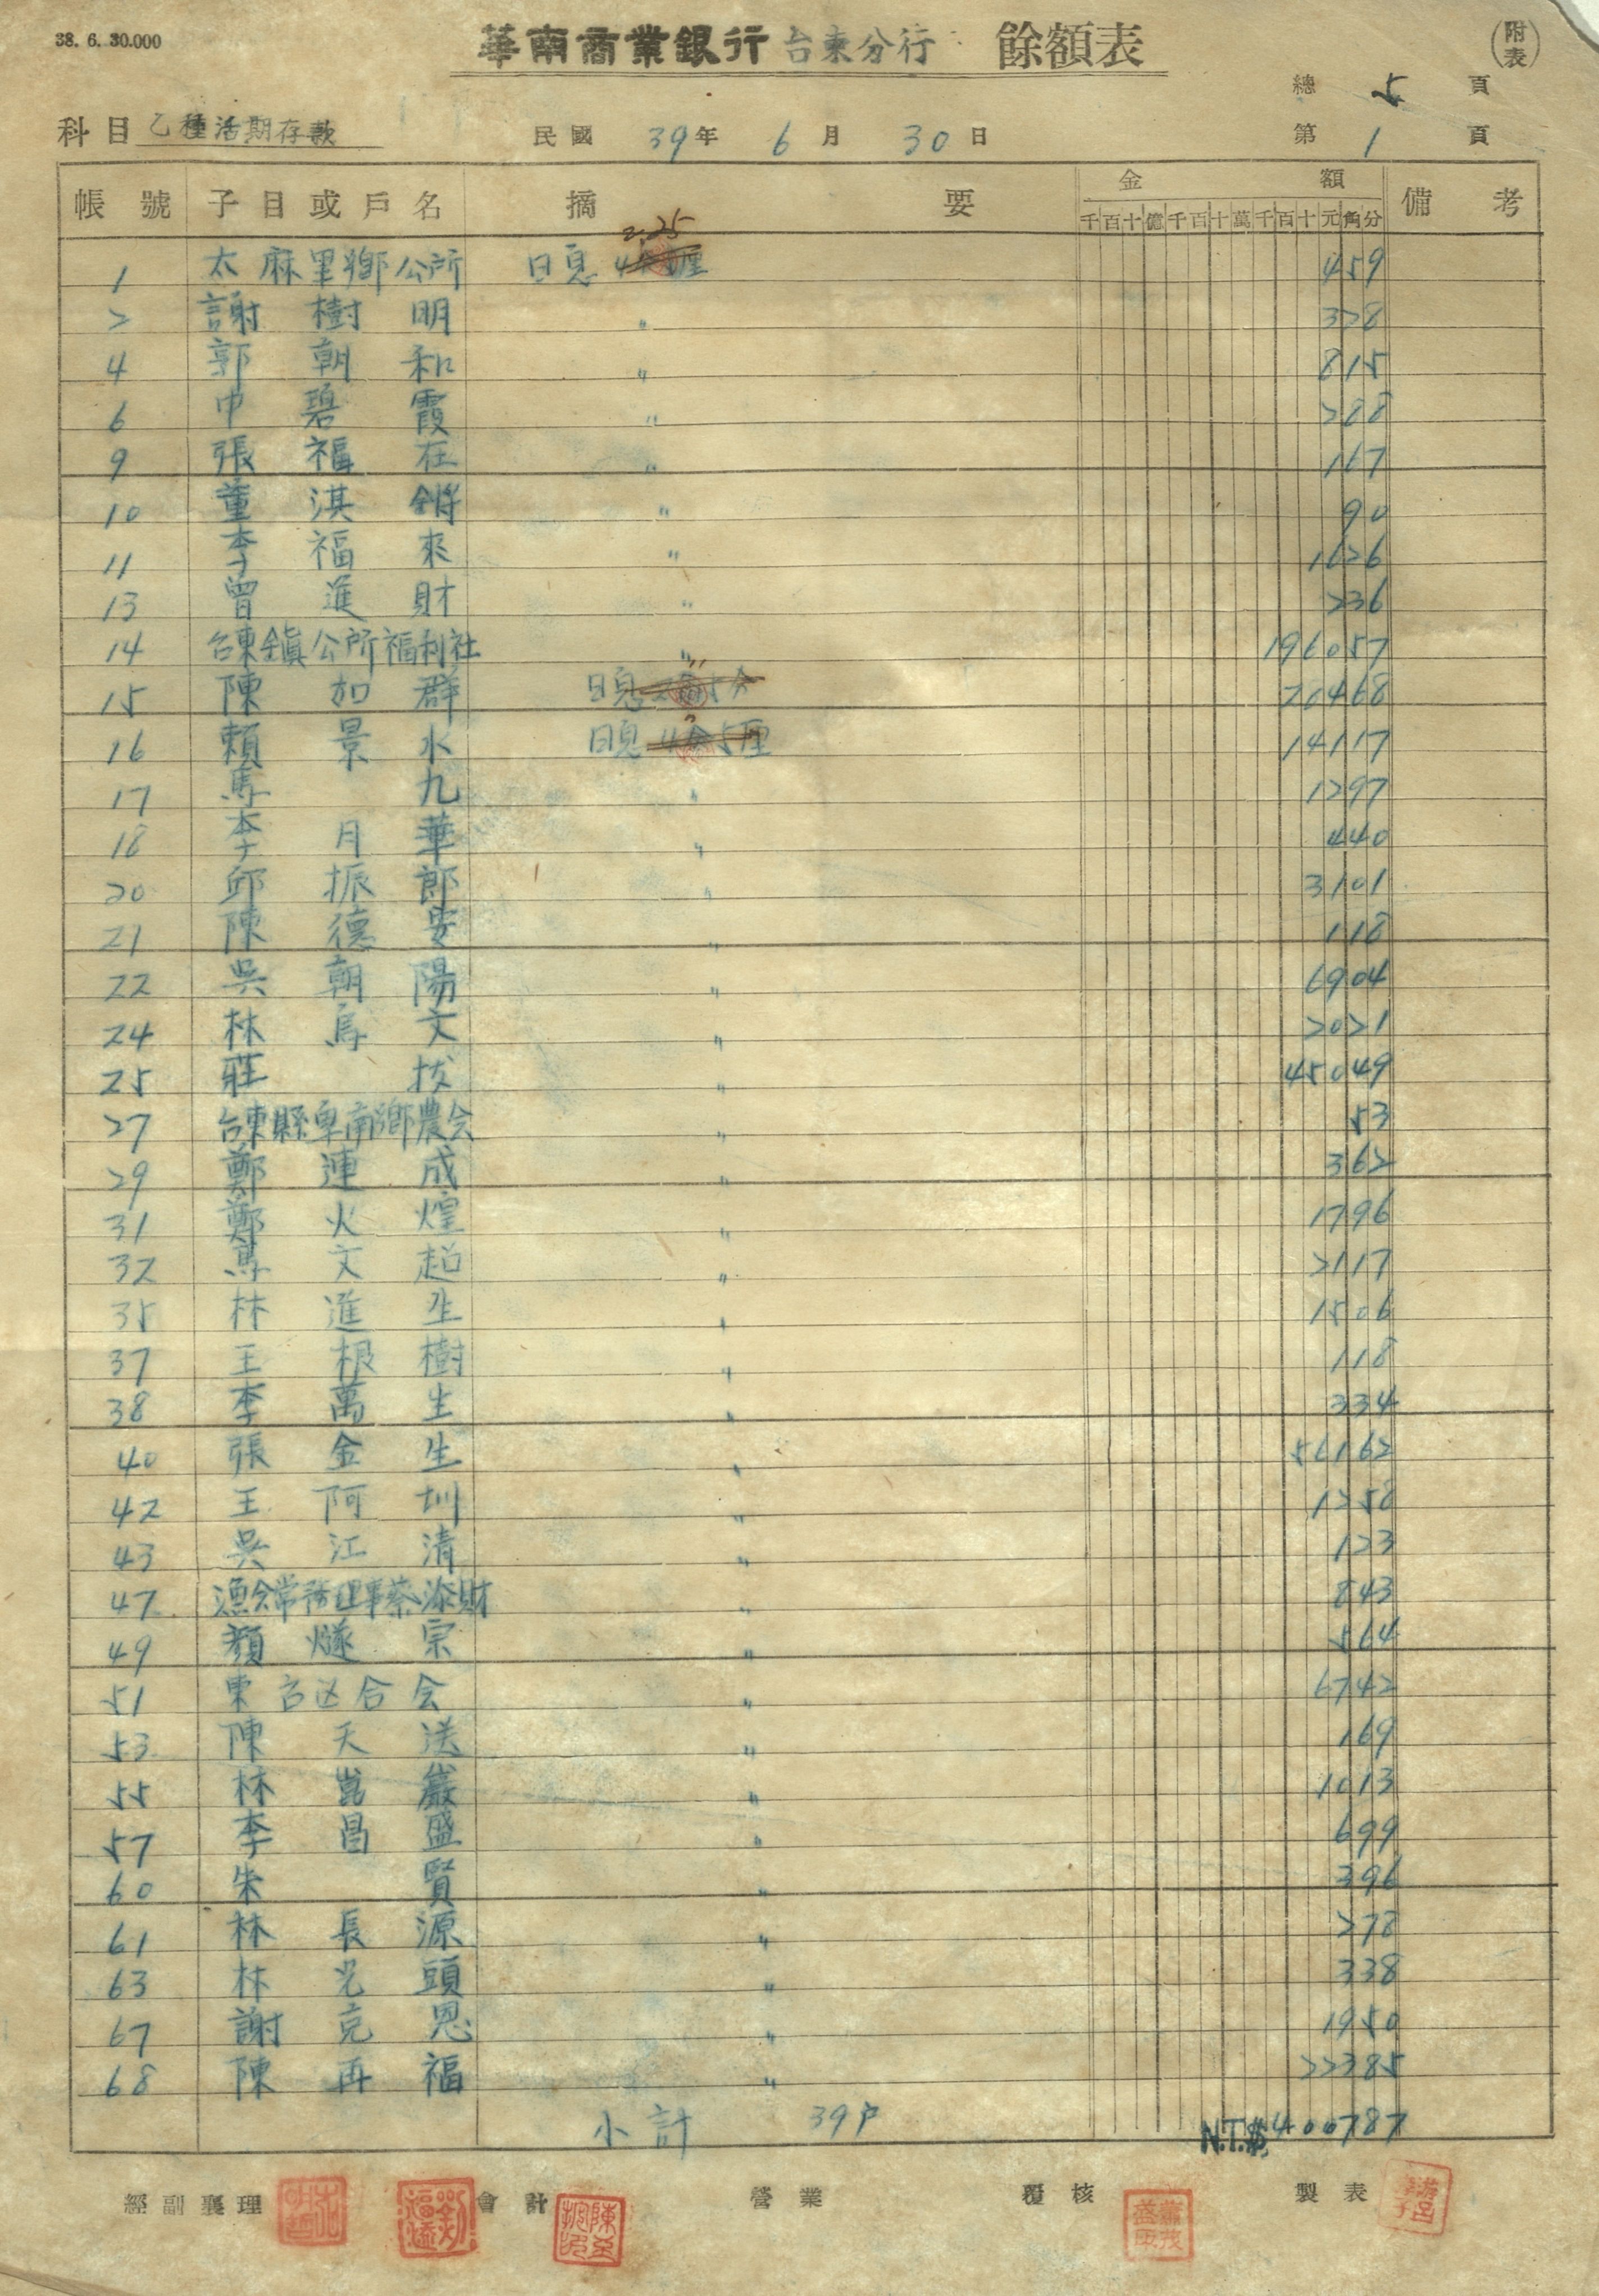 38. 6. 30.000
華南商業銀行 台東分行 餘額表 (附表)
總 5 頁
科目 乙種活期存款 民國 39年 6月 30日 第 1 頁
帳號 子目或戶名 摘要 金額 備考
千百十億千百十萬千百十元角分
2.25
1 太麻里鄉公所 日息 459
2 謝樹明 〃 328
4 郭朝和 〃 815
6 中碧霞 〃 288
9 張福在 〃 167
10 董淇鏘 〃 90
11 李福來 〃 1626
13 曾進財 〃 236
14 台東鎮公所福利社 〃 196057
15 陳加群 日息 20468
16 賴景水 日息 14117
17 馬九 〃 1297
18 李月華 〃 440
20 邱振郎 〃 3101
21 陳德安 〃 118
22 吳朝陽 〃 6904
24 林馬文 〃 2021
25 莊拔 〃 45049
27 台東縣卑南鄉農会 〃 53
29 鄭連成 〃 362
31 鄭火煌 〃 1796
32 馬文超 〃 2117
35 林進生 〃 1506
37 王根樹 〃 118
38 李萬生 〃 334
40 張金生 〃 56162
42 王阿圳 〃 1258
43 吳江清 〃 123
47 漁会常務理事蔡添財 〃 843
49 顏燧宗 〃 564
51 東台区合会 〃 6742
53 陳天送 〃 169
55 林崑巖 〃 1013
57 李昌盛 〃 699
60 朱賢 〃 396
61 林長源 〃 278
63 林光頭 〃 338
67 謝克恩 〃 1950
68 陳再福 〃 22385
小計 39戶 N.T.$400787
經副襄理 會計 營業 覆核 製表